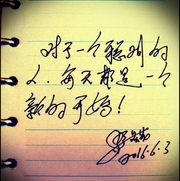 对于一个聪明的
人、每天都是一个
新的开始！
2016.6.3